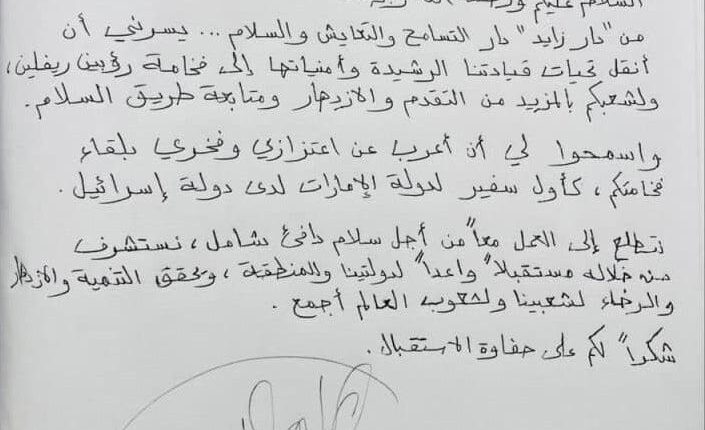 السلام عليكم ورحمة الله
من "دار زايد" دار التسامح والتعايش والسلام ... يسرني أن
أنقل تحيات قيادتنا الرشيدة وأمنياتها إلى فخامة رؤبين ريفلين،
ولشعبكم بالمزيد من التقدم والازدهار ومتابعة طريق السلام.
واسمحوا لي أن أعرب عن اعتزازي وفخري بلقاء
فخامتكم، كأول سفير لدولة الإمارات لدى دولة إسرائيل.
نتطلع إلى العمل معاً من أجل سلام دافئ شامل، نستشرف
من خلاله مستقبلاً واعداً لدولتينا وللمنطقة، ويحقق التنمية والازدهار
والرخاء لشعبينا ولشعوب العالم أجمع.
شكراً لكم على حفاوة الاستقبال.